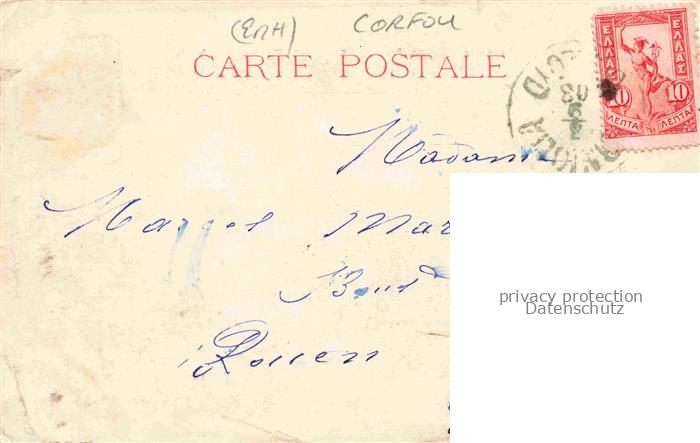 (ΕΠΗ) CORFOU
CARTE POSTALE
ΕΛΛΑΣ ΕΛΛΑΣ
10 10
ΛΕΠΤΑ ΛΕΠΤΑ
03
Madame
Marcel Mar
Boul
Rouen
privacy protection
Datenschutz